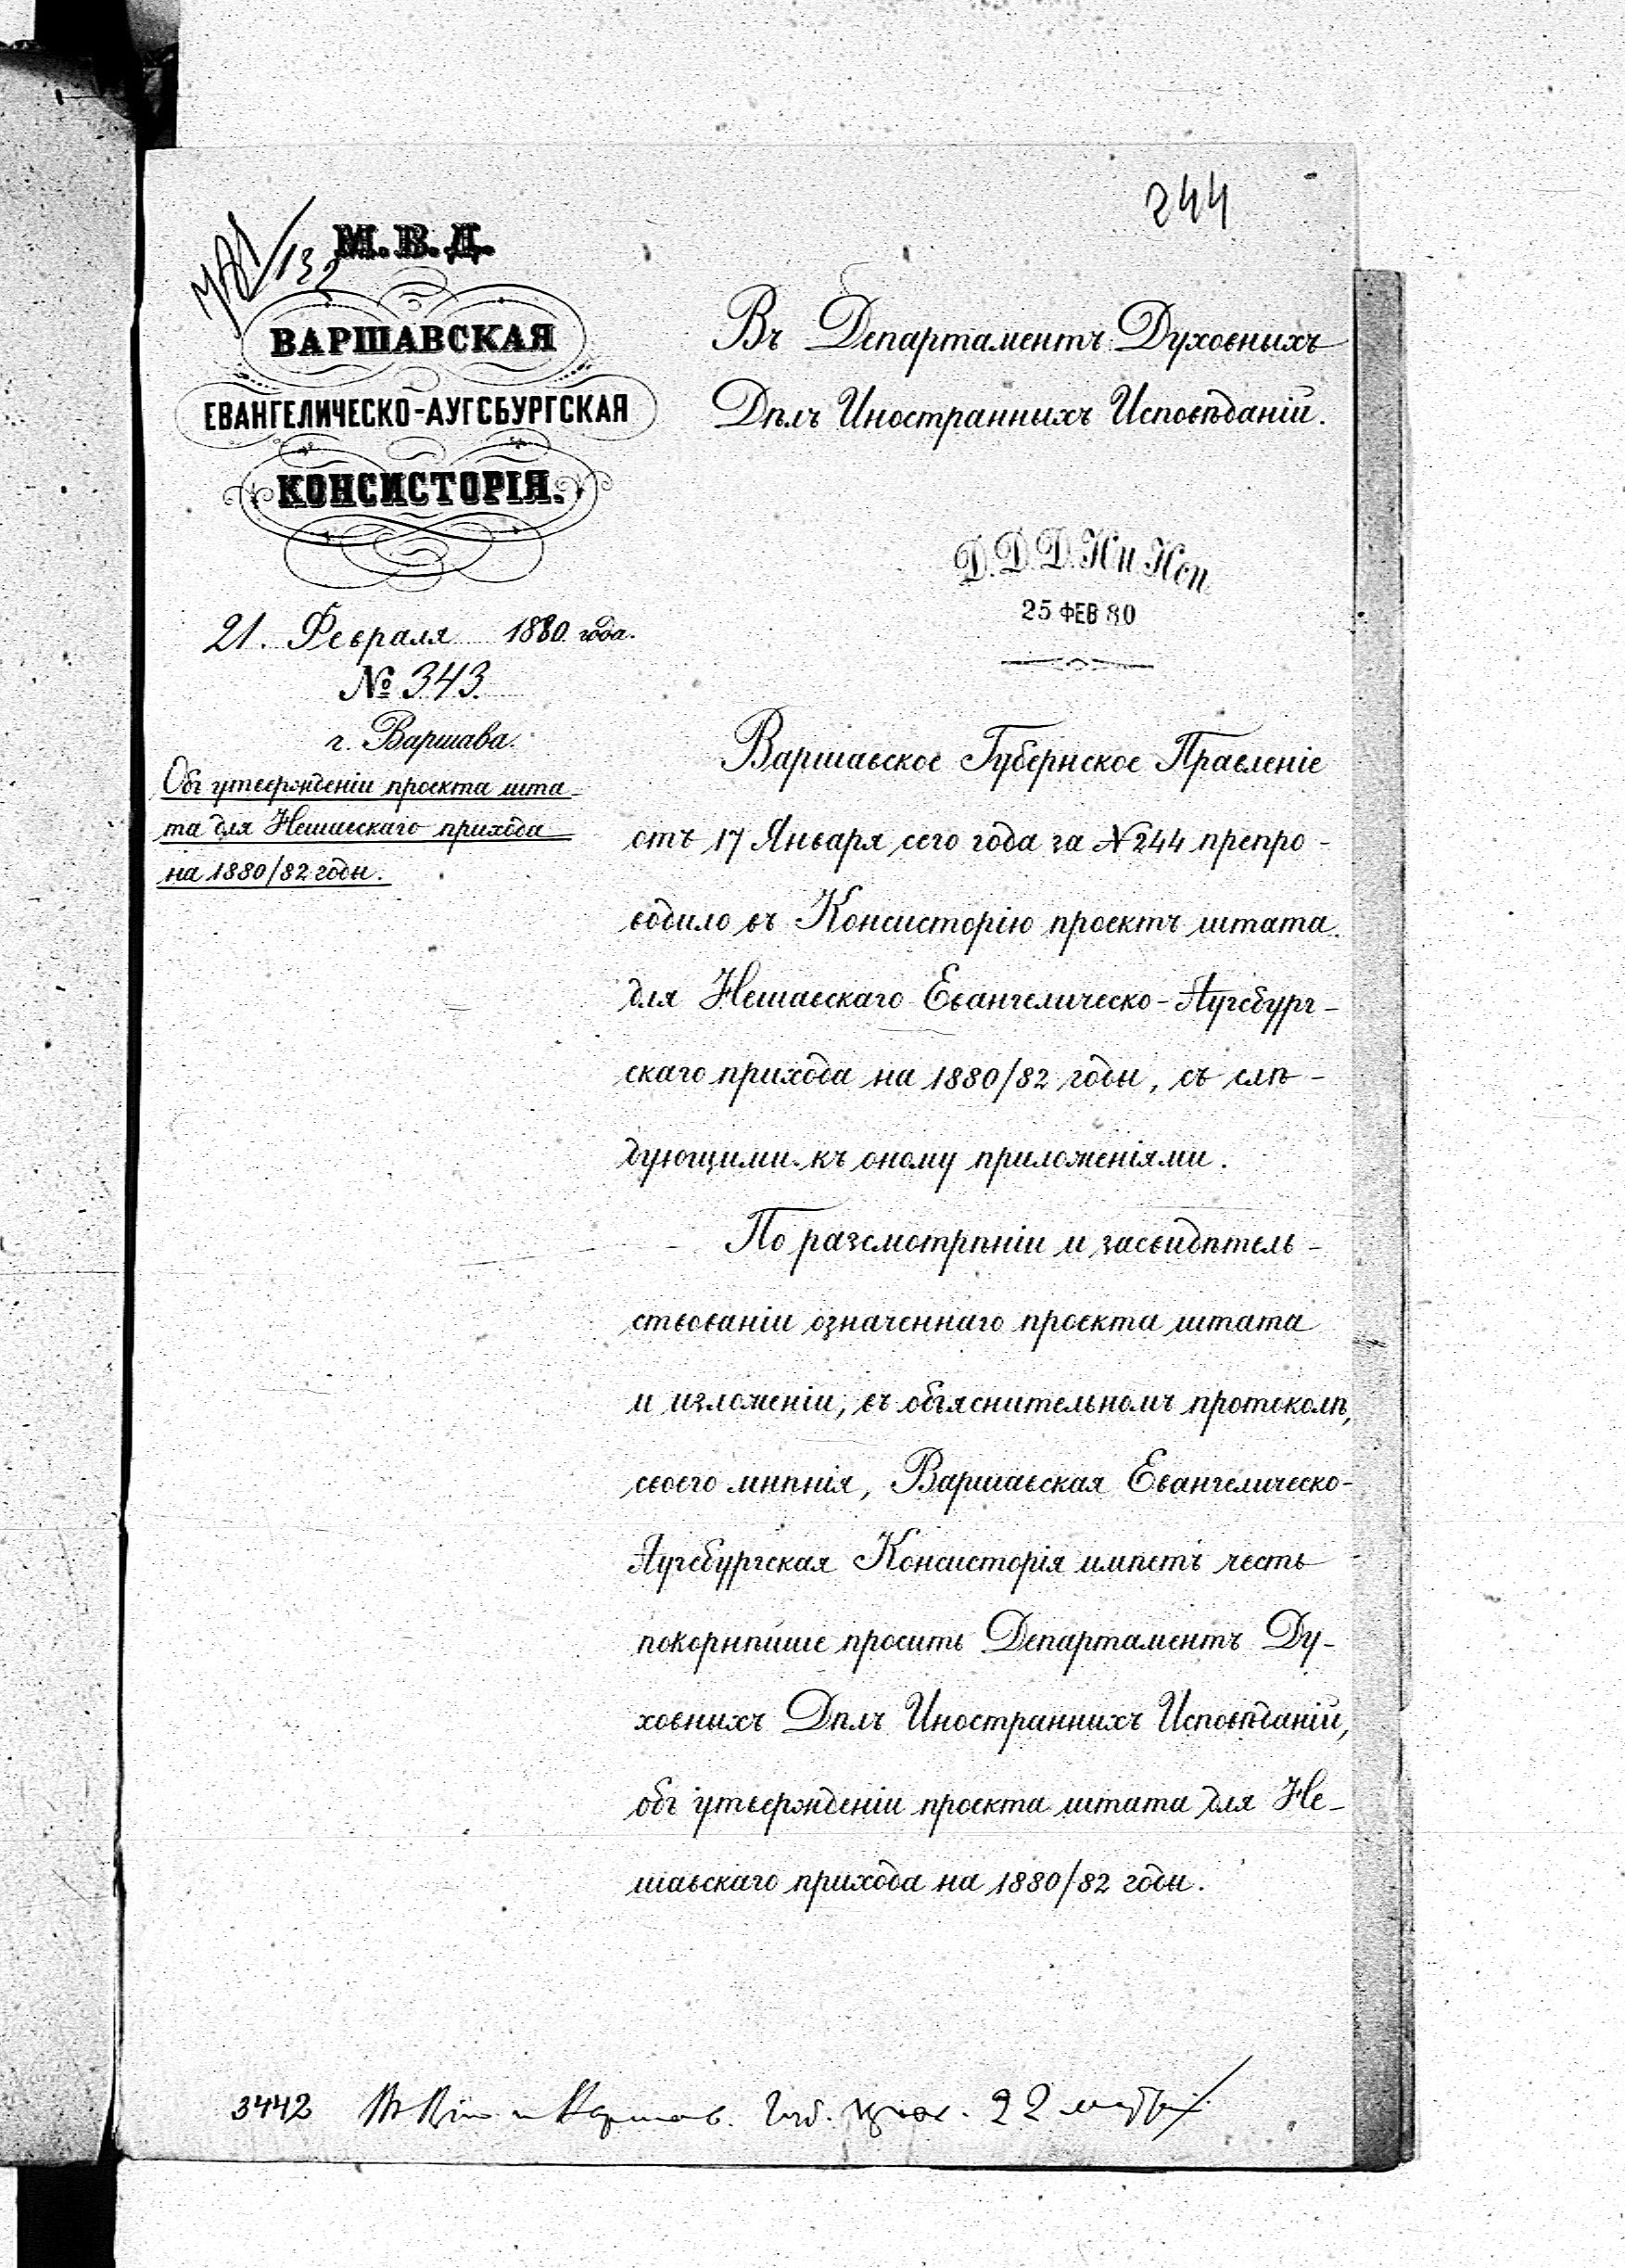 244
М.В.Д.
ВАРШАВСКАЯ
ЕВАНГЕЛИЧЕСКО-АУГСБУРГСКАЯ
КОНСИСТОРІЯ.
21. Февраля 1880. года.
№ 343.
г. Варшава.
Объ утвержденіи проекта шта-
та для Нешавскаго прихода
на 1880/82 годы.
Въ Департаментъ Духовныхъ
Дѣлъ Иностранныхъ Исповѣданій.
Д.Д.Д.Ин.Исп.
25 ФЕВ 80
Варшавское Губернское Правленіе
отъ 17 Января сего года за №244 препро-
водило въ Консисторію проектъ штата
для Нешавскаго Евангелическо-Аугсбург-
скаго прихода на 1880/82 годы, съ слѣ-
дующими къ оному приложеніями.
По разсмотрѣніи и засвидѣтель-
ствованіи означеннаго проекта штата
и изложеніи, въ объяснительномъ протоколѣ,
своего мнѣнія, Варшавская Евангелическо-
Аугсбургская Консисторія имѣетъ честь
покорнѣйше просить Департаментъ Ду-
ховныхъ Дѣлъ Иностранныхъ Исповѣданій,
объ утвержденіи проекта штата для Не-
шавскаго прихода на 1880/82 годы.
3442